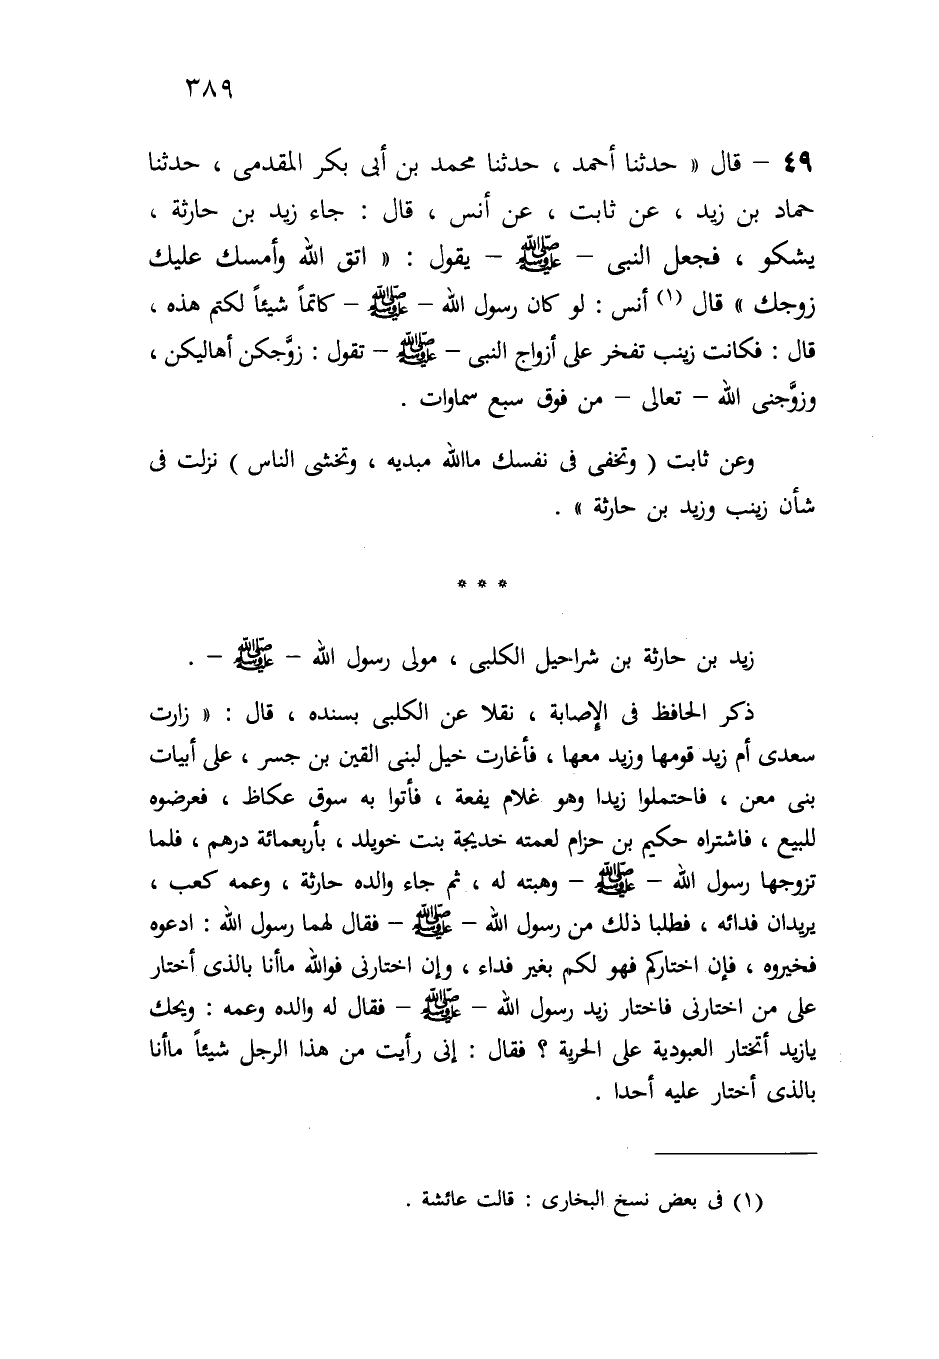 ٣٨٩
٤٩ – قال « حدثنا أحمد ، حدثنا محمد بن أبى بكر المقدمى ، حدثنا
حماد بن زيد ، عن ثابت ، عن أنس ، قال : جاء زيد بن حارثة ،
يشكو ، فجعل النبى – ﷺ – يقول : « اتق الله وأمسك عليك
زوجك » قال (١) أنس : لو كان رسول الله – ﷺ – كاتماً شيئاً لكتم هذه ،
قال : فكانت زينب تفخر على أزواج النبى – ﷺ – تقول : زوَّجكن أهاليكن ،
وزوَّجنى الله – تعالى – من فوق سبع سماوات .
وعن ثابت ( وتخفى فى نفسك ماالله مبديه ، وتخشى الناس ) نزلت فى
شأن زينب وزيد بن حارثة » .
* * *
زيد بن حارثة بن شراحيل الكلبى ، مولى رسول الله – ﷺ – .
ذكر الحافظ فى الإصابة ، نقلا عن الكلبى بسنده ، قال : « زارت
سعدى أم زيد قومها وزيد معها ، فأغارت خيل لبنى القين بن جسر ، على أبيات
بنى معن ، فاحتملوا زيدا وهو غلام يفعة ، فأتوا به سوق عكاظ ، فعرضوه
للبيع ، فاشتراه حكيم بن حزام لعمته خديجة بنت خويلد ، بأربعمائة درهم ، فلما
تزوجها رسول الله – ﷺ – وهبته له ، ثم جاء والده حارثة ، وعمه كعب ،
يريدان فدائه ، فطلبا ذلك من رسول الله – ﷺ – فقال لهما رسول الله : ادعوه
فخيروه ، فإن اختاركم فهو لكم بغير فداء ، وإن اختارنى فوالله ماأنا بالذى أختار
على من اختارنى فاختار زيد رسول الله – ﷺ – فقال له والده وعمه : ويحك
يازيد أتختار العبودية على الحرية ؟ فقال : إنى رأيت من هذا الرجل شيئاً ماأنا
بالذى أختار عليه أحدا .
(١) فى بعض نسخ البخارى : قالت عائشة .